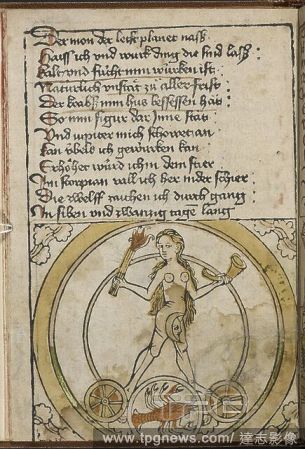 Der mon der letst planet naß
Haiss ich und würck ding die sind laß
Kalt und fücht min würcken ist
Natürlich unstät zu aller frist
Der krebß min hus besessen hat
So min figur dar jnne stat
Und iupiter mich schowet an
kan übels ich gewürcken kan
Erhöhet würd ich in dem stier
Im scorpian vall ich her nider schier
Die zwelff zaichen ich durch gang
In siben und zwantzig tage lang
www.tpgnews.com/ 達志影像